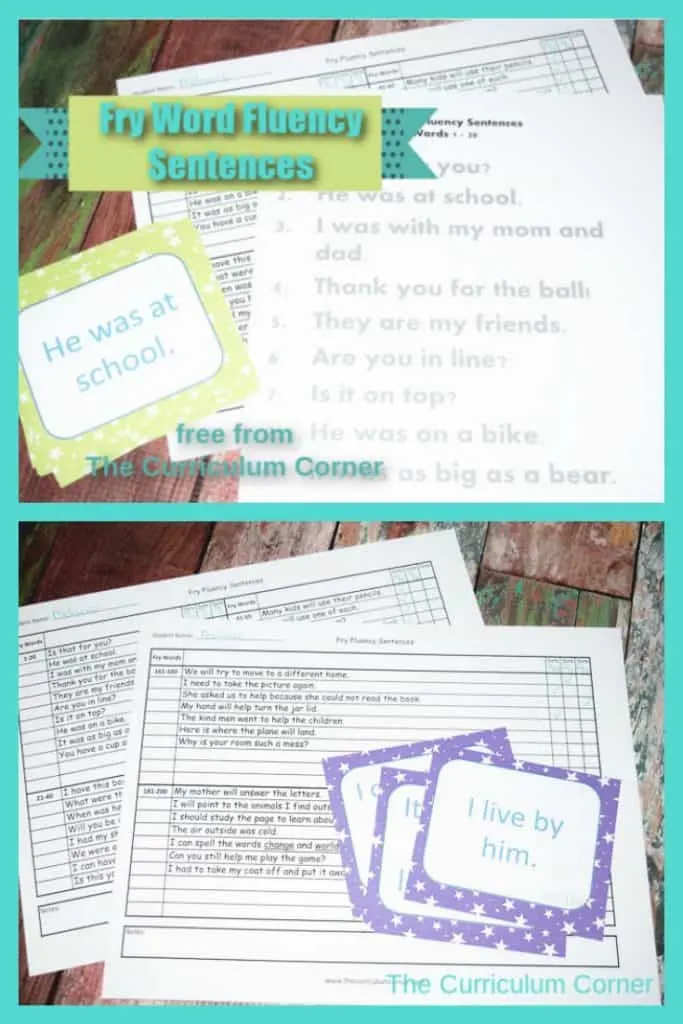 Fry Fluency Sentences
Fry Words
Many kids will use their pencils.
use one of each.
Fry Word Fluency
Sentences
luency Sentences
Words 1 - 20
you?
2. He was at school.
3. I was with my mom and
dad.
4. Thank you for the ball!
5. They are my friends.
6. Are you in line?
7. Is it on top?
He was on a bike.
as big as a bear.
He was on a bi
It was as big as
You have a cup
He was at
school.
free from
The Curriculum Corner
Fry Fluency Sentences
Fry Words
Many kids will use their pencils.
use one of each.
Fry Words
1-20
Is that for you?
He was at school.
I was with my mom an
Thank you for the ba
They are my friends
Are you in line?
Is it on top?
He was on a bike.
It was as big as a
You have a cup o
21-40
I have this bo
What were th
When was he
Will you be
I had my sh
We were a
I can have
Is this y
Notes:
Student Name:
Fry Fluency Sentences
Fry Words
161-180
We will try to move to a different home.
I need to take the picture again.
She asked us to help because she could not read the book.
My hand will help turn the jar lid.
The kind men want to help the children.
Here is where the plane will land.
Why is your room such a mess?
181-200
My mother will answer the letters.
I will point to the animals I find outs
I should study the page to learn abou
The air outside was cold.
I can spell the words change and world
Can you still help me play the game?
I had to take my coat off and put it awa
Notes:
I c
It
I live by
him.
The Curriculum Corner